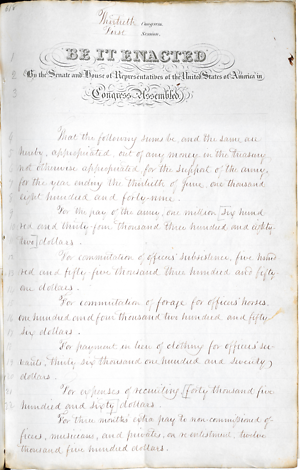 Thirtieth Congress
First Session.
BE IT ENACTED
By the Senate and House of Representatives of the United States of America in
Congress Assembled,
That the following sums be, and the same are
hereby, appropriated, out of any money in the treasury
not otherwise appropriated for the support of the army,
for the year ending the thirtieth of June, one thousand
eight hundred and forty-nine.
For the pay of the army, one million [six hund
red and thirty four thousand three hundred and eighty
two] dollars.
For commutation of officers' subsistence, five hund
red and fifty five thousand three hundred and fifty
one dollars.
For commutation of forage for officers' horses,
one hundred and four thousand two hundred and fifty
six dollars.
For payment in lieu of clothing for officers' ser
vants, thirty six thousand one hundred and seventy
dollars.
For expenses of recruiting [forty thousand five
hundred and sixty] dollars.
For three months extra pay to non-commissioned of
ficers, musicians, and privates, on re-enlistment, twelve
thousand five hundred dollars.